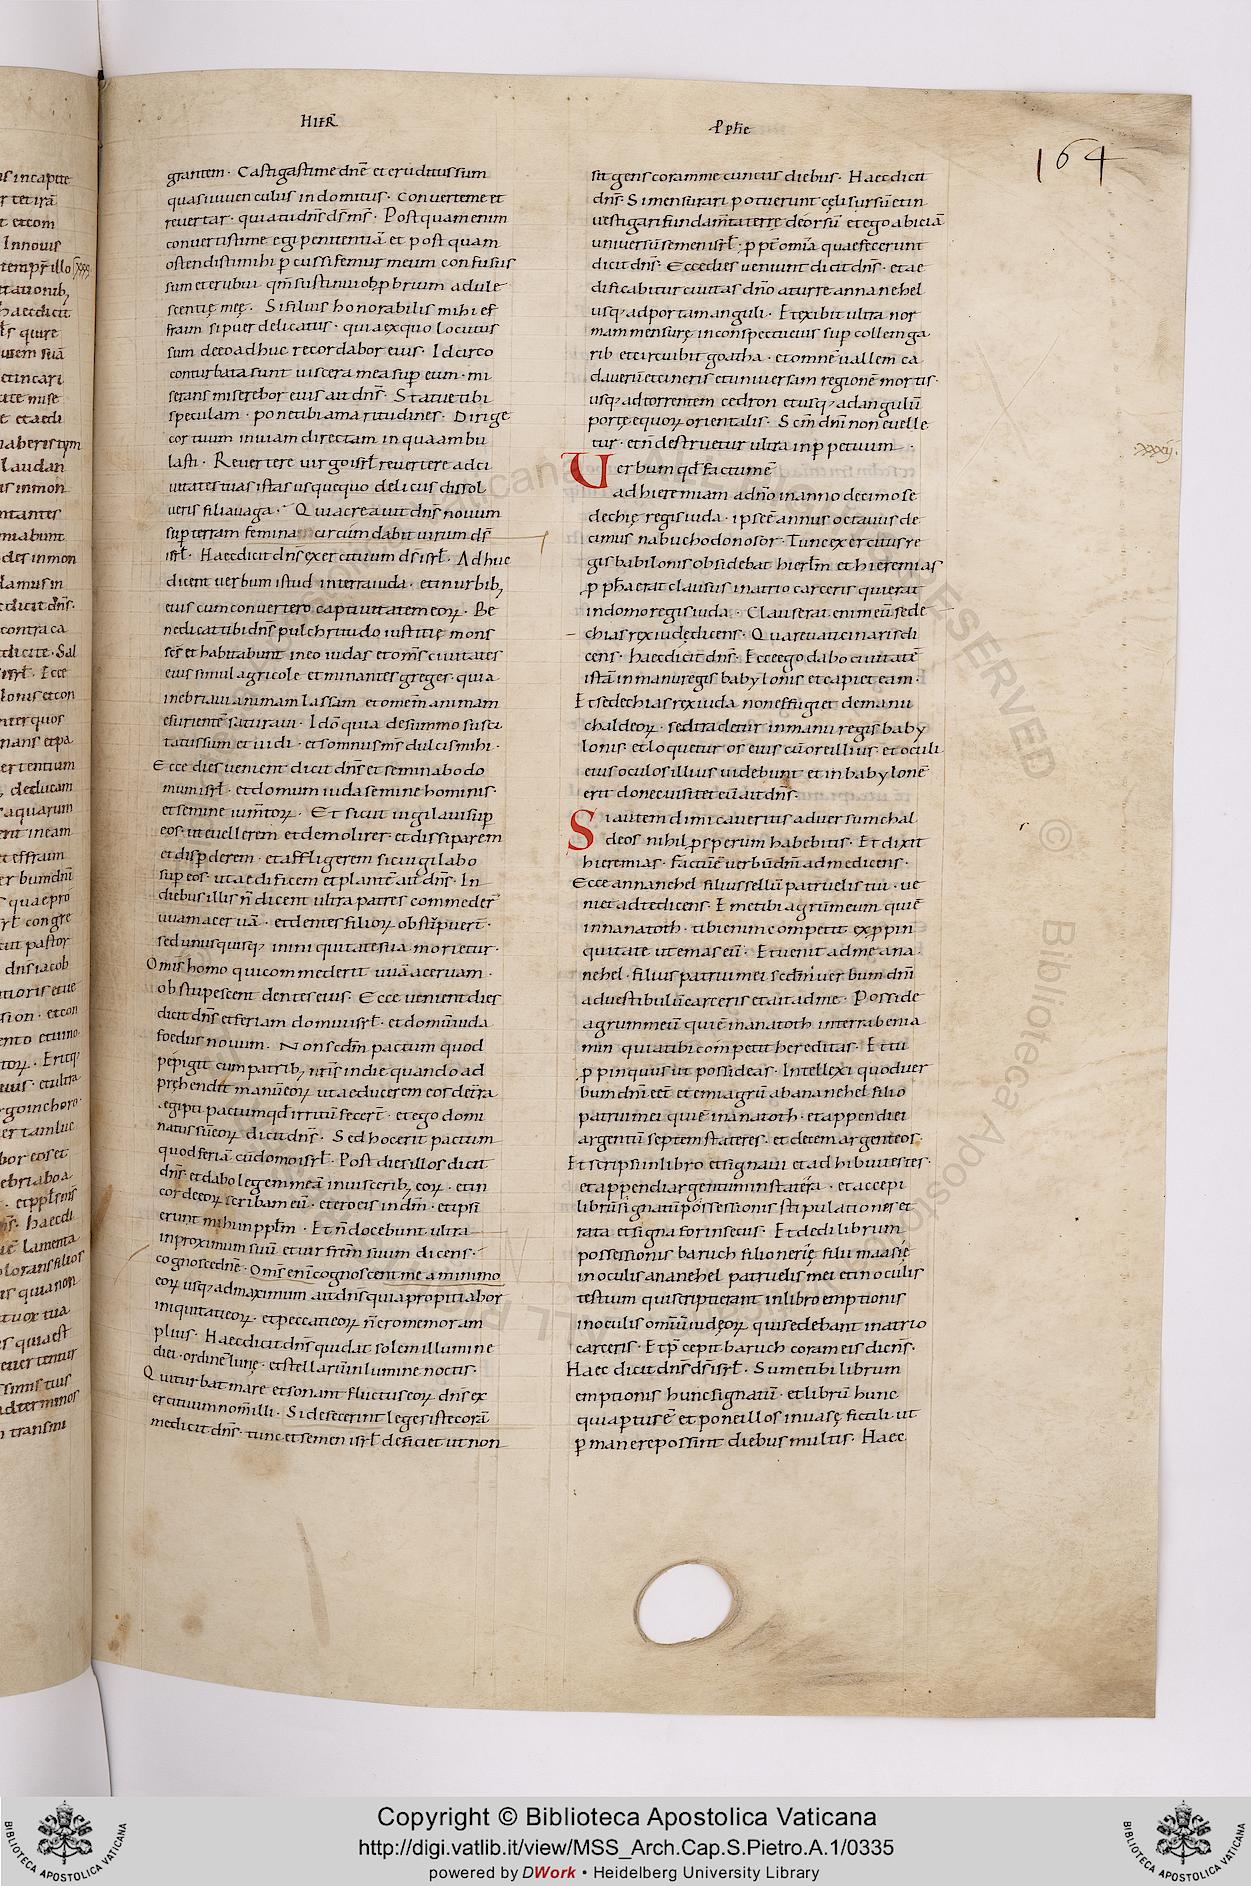 HIER̅
grantem · Castigasti me dn̅e et eruditus sum
quasi iuvenculus indomitus · Converteme et
revertar · quia tu dn̅s ds̅ ms̅ · Postquam enim
convertisti me egi penitentia̅ et postquam
ostendisti mihi p̲cussi femur meum confusus
sum et erubui qm̅ sustinui obp̲brium adule
scentię meę · Si filius honorabilis mihi ef
fraim si puer delicatus · quia ex quo locutus
sum de eo adhuc recordabor eius · Idcirco
conturbata sunt viscera mea sup̲ eum · mi
serans miserebor eius ait dn̅s · Statue tibi
speculam · pone tibi amaritudines · Dirige
cor tuum in viam directam in qua ambu
lasti · Revertere virgo isrl̅ revertere ad ci
vitates tuas istas usquequo deliciis dissol
veris filia vaga · Quia creavit dn̅s novum
sup̲ terram femina circumdabit virum ds̅
isrl̅ · Haec dicit dn̅s exercituum ds̅ isrl̅ · Adhuc
dicent verbum istud in terra iuda · et in urbib;
eius cum convertero captivitatem eoꝝ · Be
nedicat tibi dn̅s pulchritudo iustitię mons
sc̅s et habitabunt in eo iudas et om̅s civitates
eius simul agricole et minantes greges · quia
inebriavi animam lassam et omem̅ animam
esuriente̅ saturavi · Ido̅ quia de su̅mo susci
tatus sum et vidi · et somnus ms̅ dulcis mihi ·
Ecce dies venient dicit dn̅s et seminabo do
mum isrl̅ · et domum iuda semine hominis ·
et semine ium̅toꝝ · Et sicut vigilavi sup̲
eos · ut evellerem et demolirer · et dissiparem
et disp̲derem · et affligerem sic vigilabo
sup̲ eos · ut aedificem et plante̅ ait dn̅s · In
diebus illis n̅ dicent ultra patres commeder̅
uvam acerva̅ · et dentes filioꝝ obstip̲uer̅t ·
sed unusquisq; in iniquitate sua morietur ·
Omis̅ homo qui commederit uva̅ acervam ·
obstupescent dentes eius · Ecce venient dies
dicit dn̅s et feriam domui isrl̅ · et domui̅ iuda
foedus novum · Non scd̅m pactum quod
pepigit cum patrib; vr̅is in die quando ad
prehendit manu̅ eoꝝ ut aeducerem eos de tr̅ra
ęgipti pactum qd̅ irritu̅ fecer̅t · et ego domi
natus su̅ eoꝝ dicit dn̅s · Sed hoc erit pactum
quod feria̅ cu̅ domo isrl̅ · Post dies illos dicit
dn̅s · et dabo legem mea̅ in viscerib; eoꝝ · et in
corde eoꝝ scribam eu̅ · et ero eis in dm̅ · et ipsi
erunt mihi in ppl̅m · Et n̅ docebunt ultra
in proximum suu̅ et vir frem̅ suum dicens ·
cognosce dn̅e · Om̅s eni̅ cognoscent me a minimo
eoꝝ usq; ad maximum ait dn̅s quia propitiabor
iniquitati eoꝝ · et peccati eoꝝ n̅ ero memor am
plius · Haec dicit dn̅s qui dat solem in lumine
diei · ordine̅ lunę · et stellaru̅ in lumine noctis ·
Qui turbat mare et sonant fluctus eoꝝ dn̅s ex
ercituum nom̅ illi · Si defecerint leges iste cora̅
me dicit dn̅s · tunc et semen isrl̅ deficiet ut non
P̲ph̅e
164
sit gens coram me cunctis diebus · Haec dicit
dn̅s · Si mensurari potuerunt cęli sursu̅ et in
vestigari fundam̅ta terrę deorsu̅ et ego abicia̅
universu̅ semen isrl̅ · p̲pt̅ om̅ia quae fecerunt
dicit dn̅s · Ecce dies veniunt dicit dn̅s · et ae
dificabitur civitas dn̅o a turre annanehel
usq; ad portam anguli · Et exibit ultra nor
mam mensurę in conspectu eius sup̲ collem ga
rib et circuibit goatha · et omne̅ vallem ca
daveru̅ et cineris et universam regione̅ mortis ·
usq; ad torrentem cedron et usq; ad angulu̅
portę equoꝝ orientalis · Scm̅ dn̅i non evelle
tur · et n̅ destruetur ultra in p̲petuum ·
xxxij.
Verbum qd̅ factum e̅
ad hieremiam a dn̅o in anno decimo se
dechię regis iuda · ipse e̅ annus octavus de
cimus nabuchodonosor · Tunc exercitus re
gis babilonis obsidebat hierl̅m et hieremias
p̲ph̅a erat clausus in atrio carceris qui erat
in domo regis iuda · Clauserat enim eu̅ sede
chias rex iudę dicens · Quare vaticinaris di
cens · haec dicit dn̅s · Ecce ego dabo civitate̅
ista̅ in manu regis babylonis et capiet eam ·
Et sedechias rex iuda non effugiet de manu
chaldeoꝝ · sed tradetur in manu regis baby
lonis · et loquetur os eius cu̅ ore illius · et oculi
eius oculos illius videbunt et in babylone̅
erit donec visitet eu̅ ait dn̅s ·
Si autem dimicaveritis adversum chal
deos nihil p̲sperum habebitis · Et dixit
hieremias · Factu̅ e̅ verbu̅ dn̅i ad me dicens ·
Ecce annanehel filius sellu̅ patruelis tui · ve
niet ad te dicens · Eme tibi agru̅ meum qui e̅
in nanatoth · tibi enim competit ex p̲pin
quitate ut emas eu̅ · Et venit ad me ana
nehel · filius patrui mei scd̅m verbum dn̅i
ad vestibulu̅ carceris et ait ad me · Posside
agrum meu̅ qui e̅ in anatoth in terra benia
min · quia tibi competit hereditas · Et tu
p̲pinquus ut possideas · Intellexi quod ver
bum dn̅i eet̅ et emi agru̅ ab ananehel filio
patrui mei qui e̅ in anatoth · et appendi ei
argentu̅ septem stateres · et decem argenteos ·
Et scripsi in libro et signavi et adhibui testes ·
et appendi argentum in statera · et accepi
libru̅ signatu̅ possessionis stipulationes et
rata et signa forinsecus · Et dedi librum
possessionis baruch filio nerię filii maasię
in oculis ananehel patruelis mei et in oculis
testium qui scripti erant in libro emptionis
in oculis omi̅u̅ iudęoꝝ qui sedebant in atrio
carceris · Et p̲cepit baruch coram eis dicn̅s ·
Haec dicit dn̅s ds̅ isrl̅ · Sume tibi librum
emptionis hunc signatu̅ · et libru̅ hunc
qui ap̲tus e̅ et pone illos in vase fictili ut
p̲manere possint diebus multis · Haec
Copyright © Biblioteca Apostolica Vaticana
http://digi.vatlib.it/view/MSS_Arch.Cap.S.Pietro.A.1/0335
powered by DWork • Heidelberg University Library